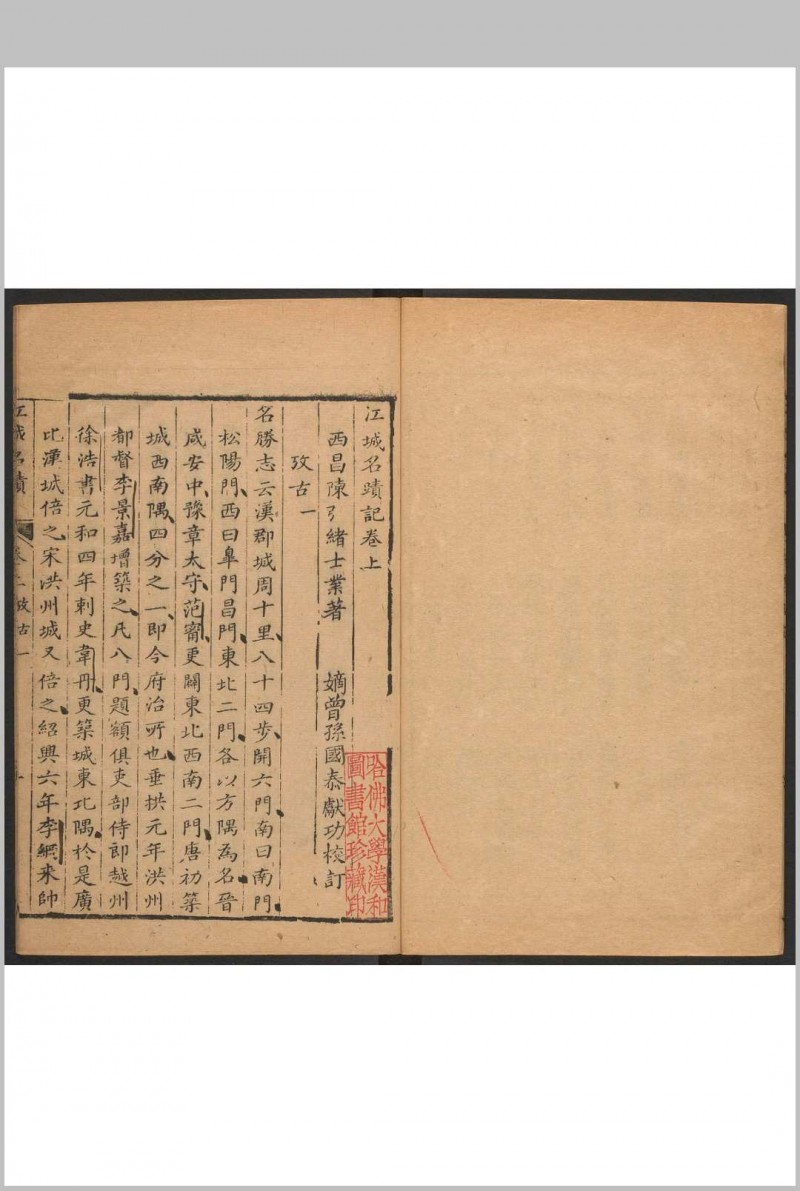 江城名蹟記卷上
西昌陳弘緒士業著　嫡曾孫國泰獻功校訂
攷古一
名勝志云漢郡城周十里八十四步開六門南曰南門
松陽門西曰皐門昌門東北二門各以方隅為名晉
咸安中豫章太守范甯更闢東北西南二門唐初築
城西南隅四分之一即今府治所也垂拱元年洪州
都督李景嘉增築之凡八門題額俱吏部侍郎越州
徐浩書元和四年刺史韋丹更築城東北隅於是廣
比漢城倍之宋洪州城又倍之紹興六年李綱來帥
江城名蹟　卷上攷古一
哈佛大學漢和
圖書館珍藏印